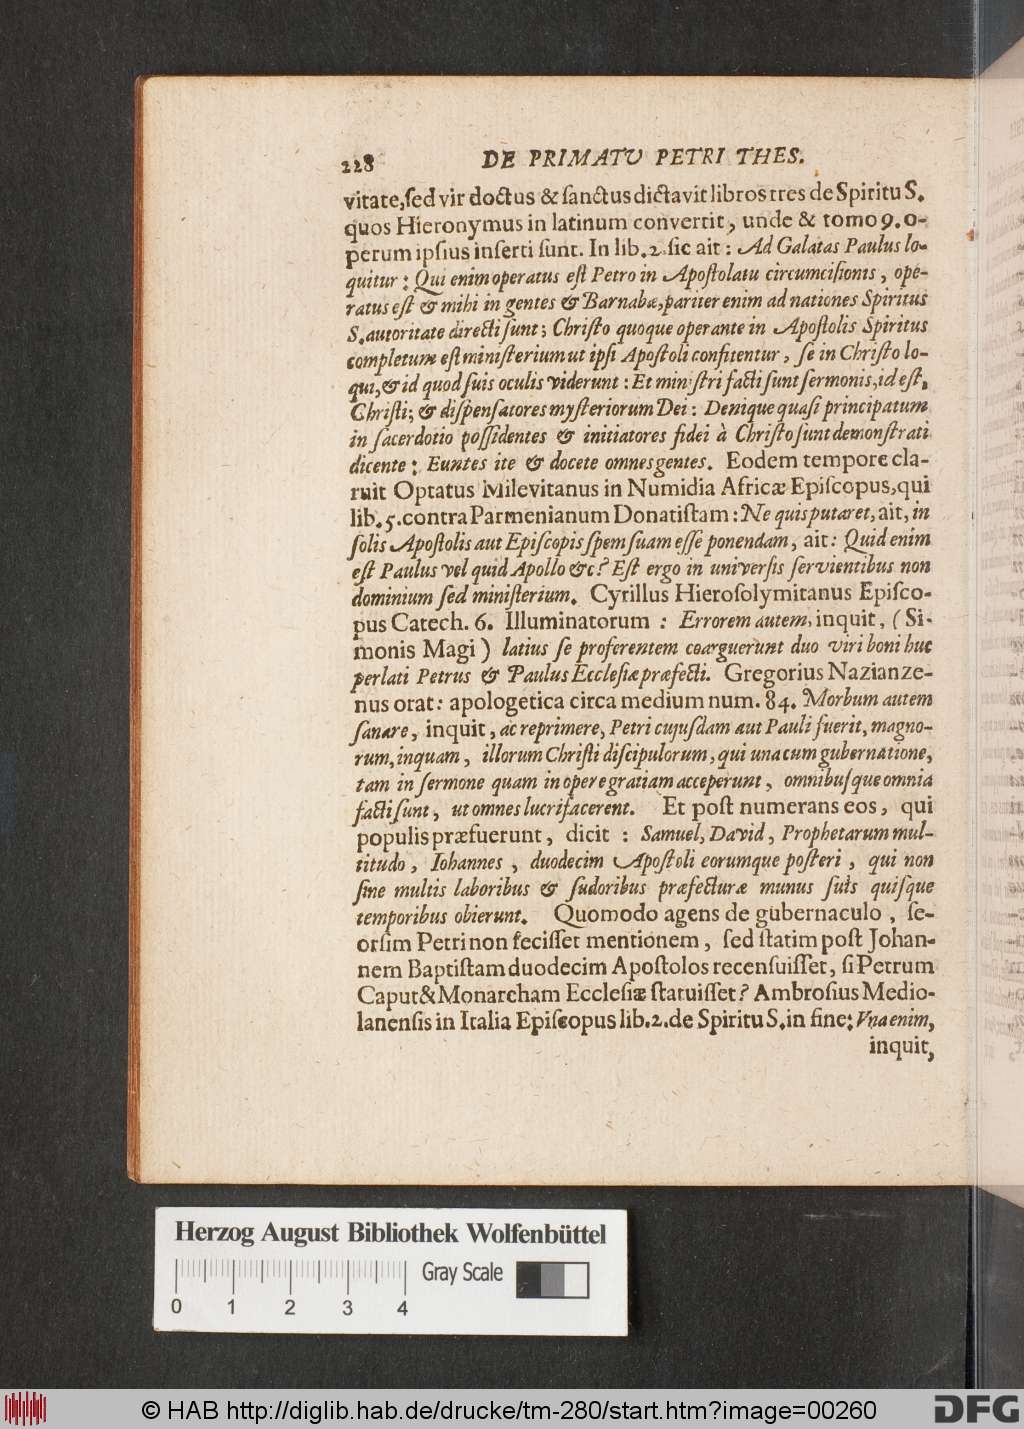 228 DE PRIMATU PETRI THES.
vitate, ſed vir doctus & ſanctus dictavit libros tres de Spiritu S.
quos Hieronymus in latinum convertit, unde & tomo 9. o-
perum ipſius inſerti ſunt. In lib. 2. ſic ait: Ad Galatas Paulus lo-
quitur: Qui enim operatus eſt Petro in Apoſtolatu circumciſionis, ope-
ratus eſt & mihi in gentes & Barnabæ, pariter enim ad nationes Spiritus
S. autoritate directi ſunt; Chriſto quoque operante in Apoſtolis Spiritus
completum eſt miniſterium ut ipſi Apoſtoli confitentur, ſe in Chriſto lo-
qui, & id quod ſuis oculis viderunt: Et miniſtri facti ſunt ſermonis, id eſt,
Chriſti; & diſpenſatores myſteriorum Dei: Denique quaſi principatum
in ſacerdotio poſſidentes & initiatores fidei à Chriſto ſunt demonſtrati
dicente: Euntes ite & docete omnes gentes. Eodem tempore cla-
ruit Optatus Milevitanus in Numidia Africæ Epiſcopus, qui
lib. 5. contra Parmenianum Donatiſtam: Ne quis putaret, ait, in
ſolis Apoſtolis aut Epiſcopis ſpem ſuam eſſe ponendam, ait: Quid enim
eſt Paulus vel quid Apollo &c? Eſt ergo in univerſis ſervientibus non
dominium ſed miniſterium. Cyrillus Hieroſolymitanus Epiſco-
pus Catech. 6. Illuminatorum: Errorem autem, inquit, (Si-
monis Magi) latius ſe proferentem coarguerunt duo viri boni huc
perlati Petrus & Paulus Eccleſiæ præfecti. Gregorius Nazianze-
nus orat: apologetica circa medium num. 84. Morbum autem
ſanare, inquit, ac reprimere, Petri cujuſdam aut Pauli fuerit, magno-
rum, inquam, illorum Chriſti diſcipulorum, qui una cum gubernatione,
tam in ſermone quam in opere gratiam acceperunt, omnibuſque omnia
facti ſunt, ut omnes lucrifacerent. Et poſt numerans eos, qui
populis præfuerunt, dicit: Samuel, David, Prophetarum mul-
titudo, Iohannes, duodecim Apoſtoli eorumque poſteri, qui non
ſine multis laboribus & ſudoribus præfecturæ munus ſuis quiſque
temporibus obierunt. Quomodo agens de gubernaculo, ſe-
orſim Petri non feciſſet mentionem, ſed ſtatim poſt Johan-
nem Baptiſtam duodecim Apoſtolos recenſuiſſet, ſi Petrum
Caput & Monarcham Eccleſiæ ſtatuiſſet? Ambroſius Medio-
lanenſis in Italia Epiſcopus lib. 2. de Spiritu S. in fine: Vna enim,
inquit,
Herzog August Bibliothek Wolfenbüttel
Gray Scale
0 1 2 3 4
© HAB http://diglib.hab.de/drucke/tm-280/start.htm?image=00260
DFG